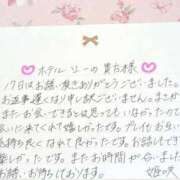 ホテルソーの貴方様
17日はお誘い頂きありがとうございました。
お返事遅くなり申し訳ございません。まさか
またお会いできるとは思ってもいなかったので
会いに来てくれて嬉しかったです。プレイも お互い
気持ちよくなれて良かったです。お話しもでき
楽しかったです。またお時間が合いましたら
お誘いお待ちしております。
姫咲